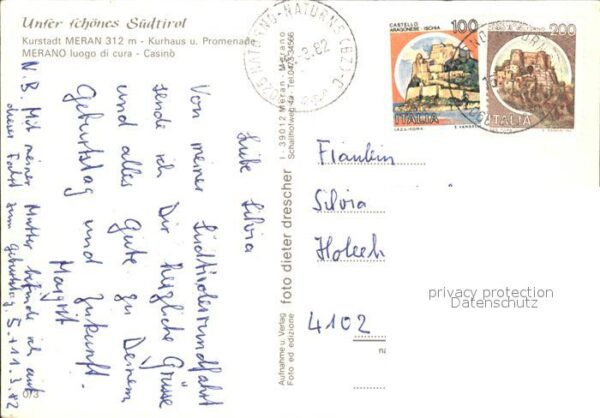 Unser schönes Südtirol
Kurstadt MERAN 312 m - Kurhaus u. Promenade
MERANO luogo di cura - Casinò
Liebe Silvia
Von meiner Südtirolerrundfahrt
sende ich Dir herzliche Grüsse
und alles Gute zu Deinem
Geburtstag und Zukunft.
Margrit
N.B. Mit meiner Mutter befinde ich auf
dieser Fahrt zum Geburtstag 5.+11.3.82
0/3
Aufnahme u. Verlag
Foto ed edizione
foto dieter drescher
I - 39012 Meran - Merano
Schallhofweg 4a Tel. 0473/34566
39025 NATURNO - NATURNS (BZ)
3.82
CASTELLO
ARAGONESE - ISCHIA
100
ITALIA
I.P.Z.S. - ROMA
200
ITALIA
Fräulein
Silvia
4102
privacy protection
Datenschutz